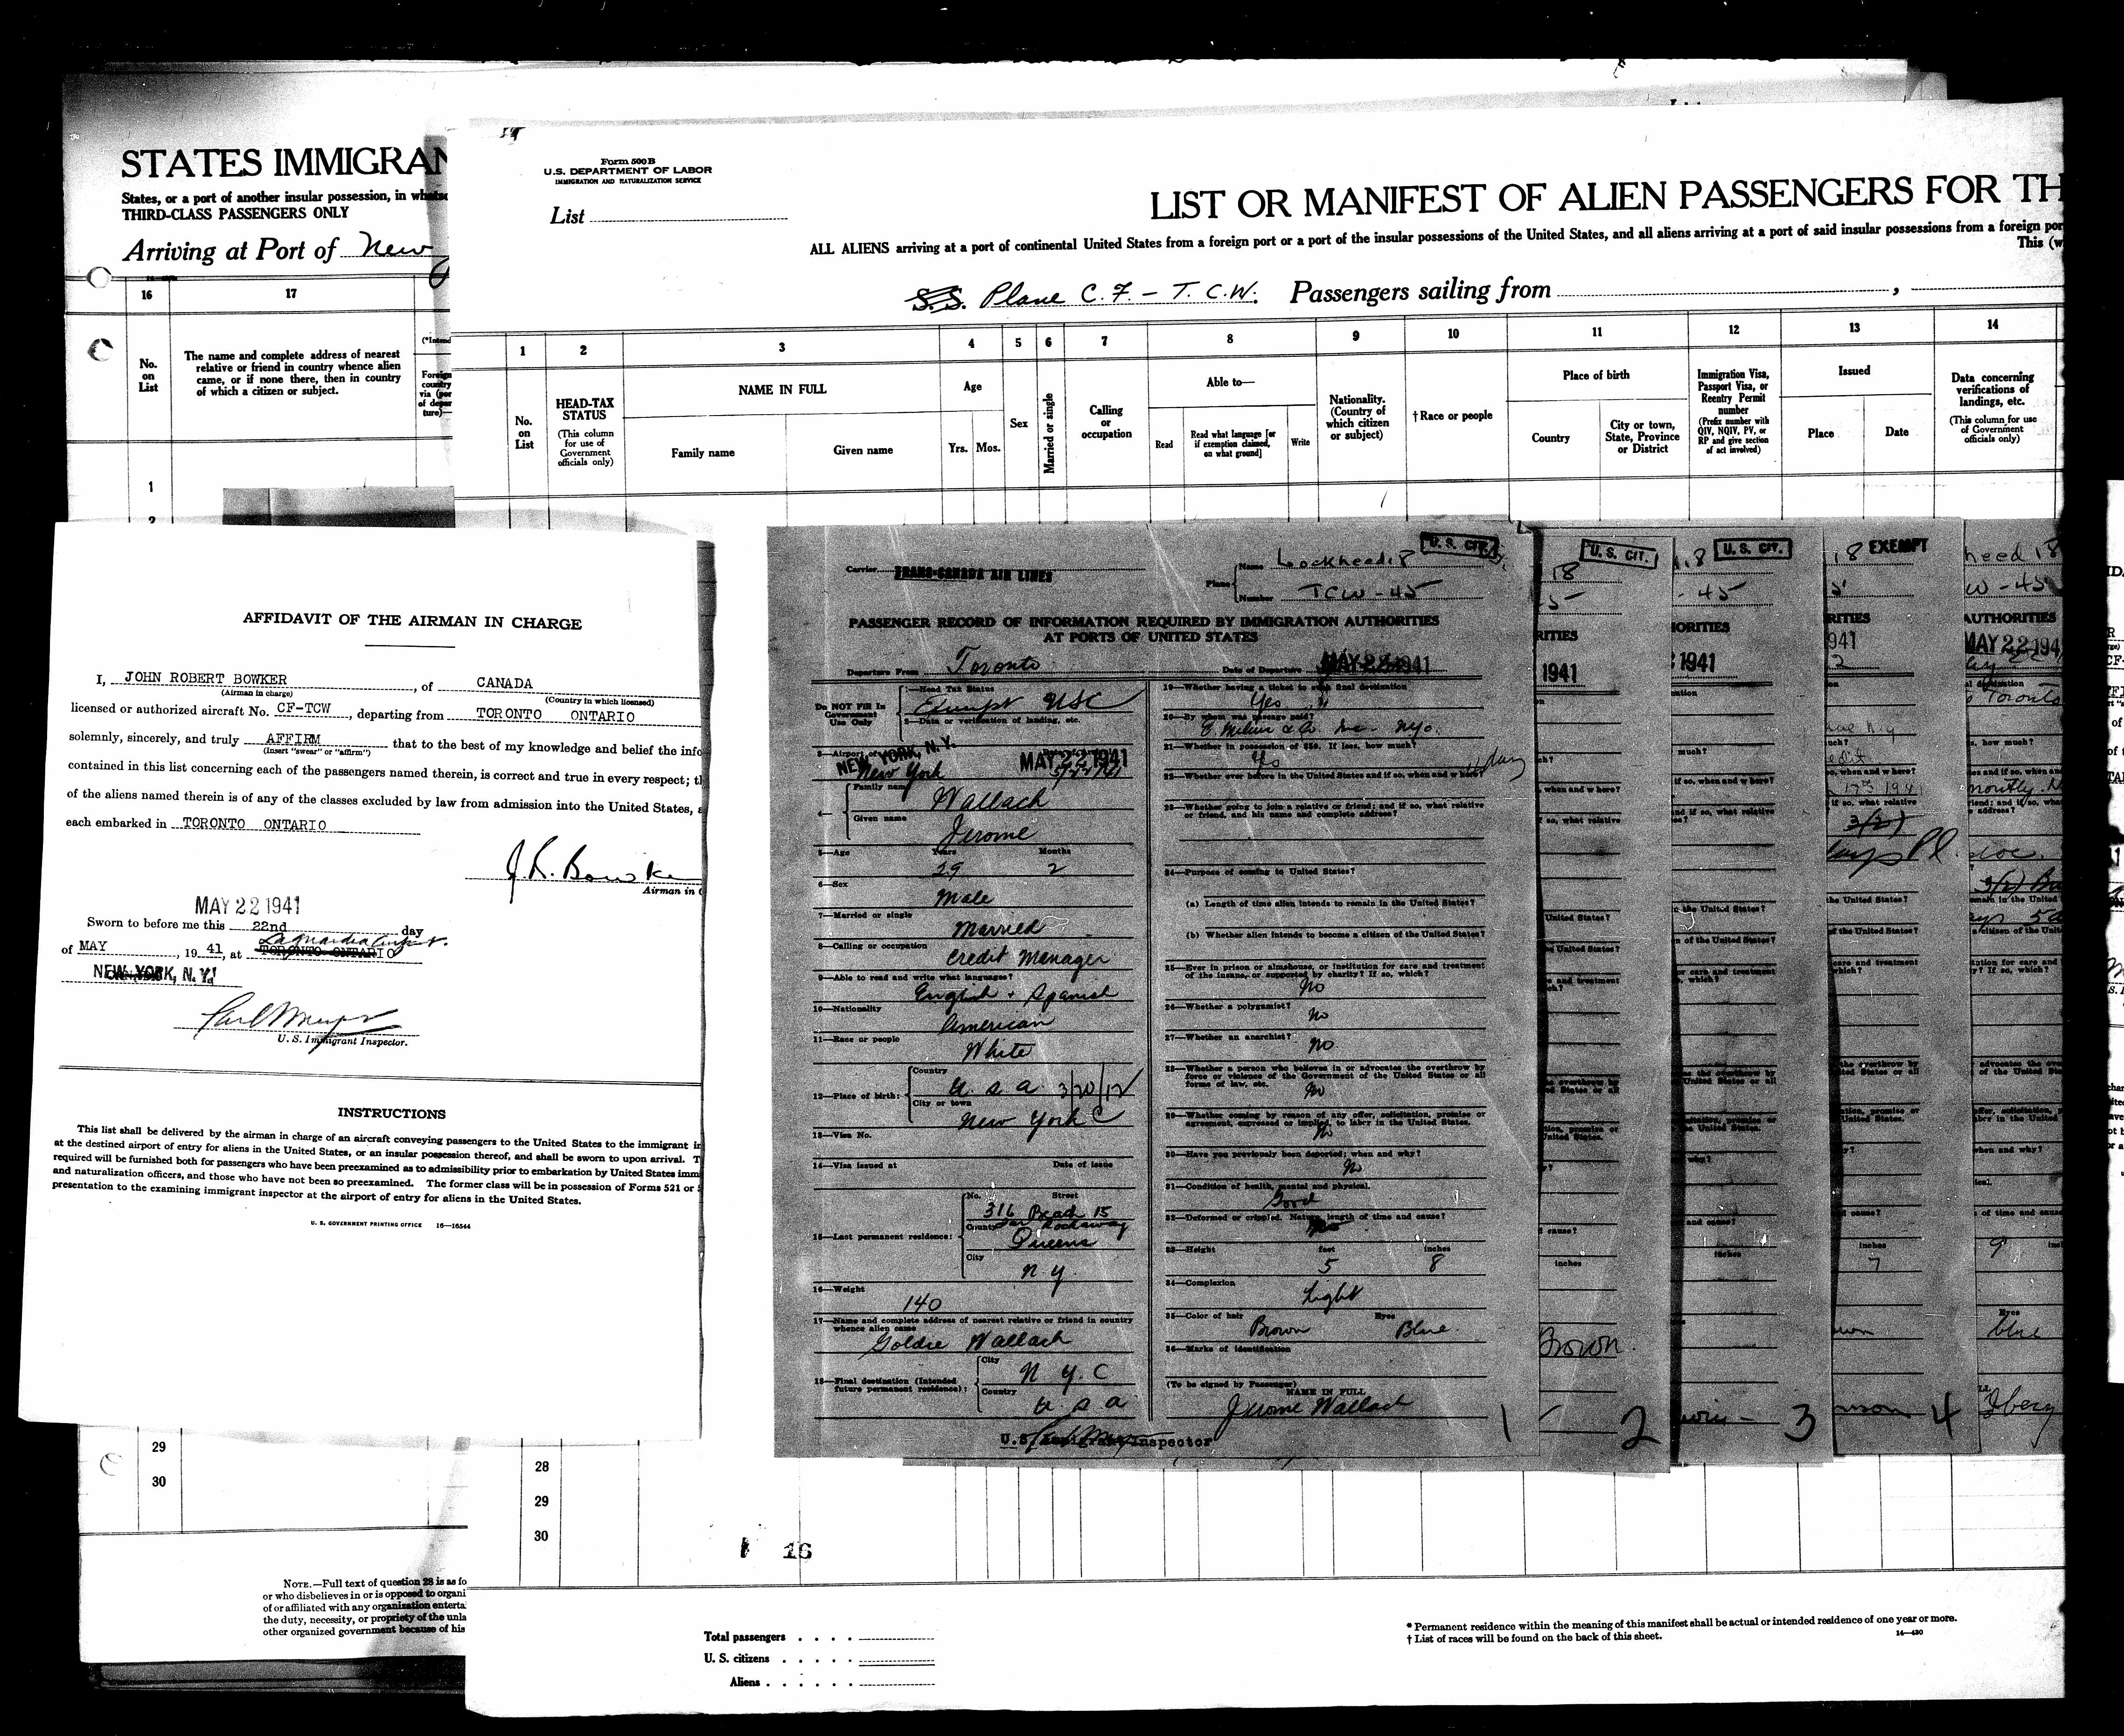 STATES IMMIGRAN
States, or a part of another insular possession, in whatso
THIRD-CLASS PASSENGERS ONLY
Arriving at Port of New
16
17
No.
on
List
The name and complete address of nearest
relative or friend in country whence alien
came, or if none there, then in country
of which a citizen or subject.
(*Intend
Foreign
country
via (por
of depar
ture)—
1
2
Form 500B
U.S. DEPARTMENT OF LABOR
IMMIGRATION AND NATURALIZATION SERVICE
List
LIST OR MANIFEST OF ALIEN PASSENGERS FOR TH
ALL ALIENS arriving at a port of continental United States from a foreign port or a part of the insular possessions of the United States, and all aliens arriving at a port of said insular possessions from a foreign por
This (w
S.S. Plane C.F. - T.C.W. Passengers sailing from ,
1 2 3 4 5 6 7 8 9 10 11 12 13 14
No.
on
List
HEAD-TAX
STATUS
(This column
for use of
Government
officials only)
NAME IN FULL
Family name
Given name
Age
Yrs.
Mos.
Sex
Married or single
Calling
or
occupation
Able to—
Read
Read what language [or
if exemption claimed,
on what ground]
Write
Nationality.
(Country of
which citizen
or subject)
†Race or people
Place of birth
Country
City or town,
State, Province
or District
Immigration Visa,
Passport Visa, or
Reentry Permit
number
(Prefix number with
QIV, NQIV, PV, or
RP and give section
of act involved)
Issued
Place
Date
Data concerning
verifications of
landings, etc.
(This column for use
of Government
officials only)
AFFIDAVIT OF THE AIRMAN IN CHARGE
I, JOHN ROBERT BOWKER, of CANADA
(Airman in charge) (Country in which licensed)
licensed or authorized aircraft No. CF-TCW, departing from TORONTO ONTARIO
solemnly, sincerely, and truly AFFIRM that to the best of my knowledge and belief the info
(Insert "swear" or "affirm")
contained in this list concerning each of the passengers named therein, is correct and true in every respect; th
of the aliens named therein is of any of the classes excluded by law from admission into the United States, a
each embarked in TORONTO ONTARIO
J. R. Bowke
Airman in C
MAY 22 1941
Sworn to before me this 22nd day
LaGuardia Airport.
of MAY, 19 41, at TORONTO ONTARIO
NEW YORK, N.Y.
U. S. Immigrant Inspector.
INSTRUCTIONS
This list shall be delivered by the airman in charge of an aircraft conveying passengers to the United States to the immigrant in
at the destined airport of entry for aliens in the United States, or an insular possession thereof, and shall be sworn to upon arrival. T
required will be furnished both for passengers who have been preexamined as to admissibility prior to embarkation by United States immi
and naturalization officers, and those who have not been so preexamined. The former class will be in possession of Forms 521 or
presentation to the examining immigrant inspector at the airport of entry for aliens in the United States.
U. S. GOVERNMENT PRINTING OFFICE 16—16544
U. S. CIT.
Carrier TRANS-CANADA AIR LINES
Plane Name Lockheed 18
Number TCW-45
PASSENGER RECORD OF INFORMATION REQUIRED BY IMMIGRATION AUTHORITIES
AT PORTS OF UNITED STATES
Departure From Toronto Date of Departure MAY 22 1941
Do NOT FILL IN
Government
Use Only
1—Head Tax Status
Exempt USC
2—Date or verification of landing, etc.
3—Airport of
NEW YORK, N.Y. MAY 22 1941
New York 5/22/41
4—
Family name
Wallach
Given name
Jerome
5—Age Years Months
29 2
6—Sex
Male
7—Married or single
Married
8—Calling or occupation
Credit Manager
9—Able to read and write what languages?
English + Spanish
10—Nationality
American
11—Race or people
White
12—Place of birth:
Country
U.S.A. 3/20/12
City or town
New York C
13—Visa No.
14—Visa issued at Date of issue
15—Last permanent residence:
No. Street
316 Beach 15
County Far Rockaway
Queens
City
N.Y.
16—Weight
140
17—Name and complete address of nearest relative or friend in country
whence alien came
Goldie Wallach
18—Final destination (Intended
future permanent residence):
City
N.Y.C
Country
U.S.A
U.S. Inspector
19—Whether having a ticket to such final destination
Yes
20—By whom was passage paid?
Inc. NYC.
21—Whether in possession of $50. If less, how much?
Yes
22—Whether ever before in the United States and if so, when and where?
23—Whether going to join a relative or friend; and if so, what relative
or friend, and his name and complete address?
24—Purpose of coming to United States?
(a) Length of time alien intends to remain in the United States?
(b) Whether alien intends to become a citizen of the United States?
25—Ever in prison or almshouse, or institution for care and treatment
of the insane, or supported by charity? If so, which?
No
26—Whether a polygamist?
No
27—Whether an anarchist?
No
28—Whether a person who believes in or advocates the overthrow by
force or violence of the Government of the United States or all
forms of law, etc.
No
29—Whether coming by reason of any offer, solicitation, promise or
agreement, expressed or implied, to labor in the United States.
No
30—Have you previously been deported; when and why?
No
31—Condition of health, mental and physical.
Good
32—Deformed or crippled. Nature, length of time and cause?
No
33—Height feet inches
5 8
34—Complexion
Light
35—Color of hair Eyes
Brown Blue
36—Marks of identification
(To be signed by Passenger)
NAME IN FULL
Jerome Wallach
1
U. S. CIT.
18
RITIES
1941
inches
Brown
2
U. S. CIT.
-45
ORITIES
1941
inches
3
18 EXEMPT
RITIES
941
inches
7
4
heed 18
W-45
AUTHORITIES
MAY 22 194
Toronto
9
Eyes
blue
29
30
28
29
30
16
NOTE.—Full text of question 28 is as fo
or who disbelieves in or is opposed to organi
of or affiliated with any organization enterta
the duty, necessity, or propriety of the unla
other organized government because of his
Total passengers
U. S. citizens
Aliens
* Permanent residence within the meaning of this manifest shall be actual or intended residence of one year or more.
† List of races will be found on the back of this sheet.
14—430